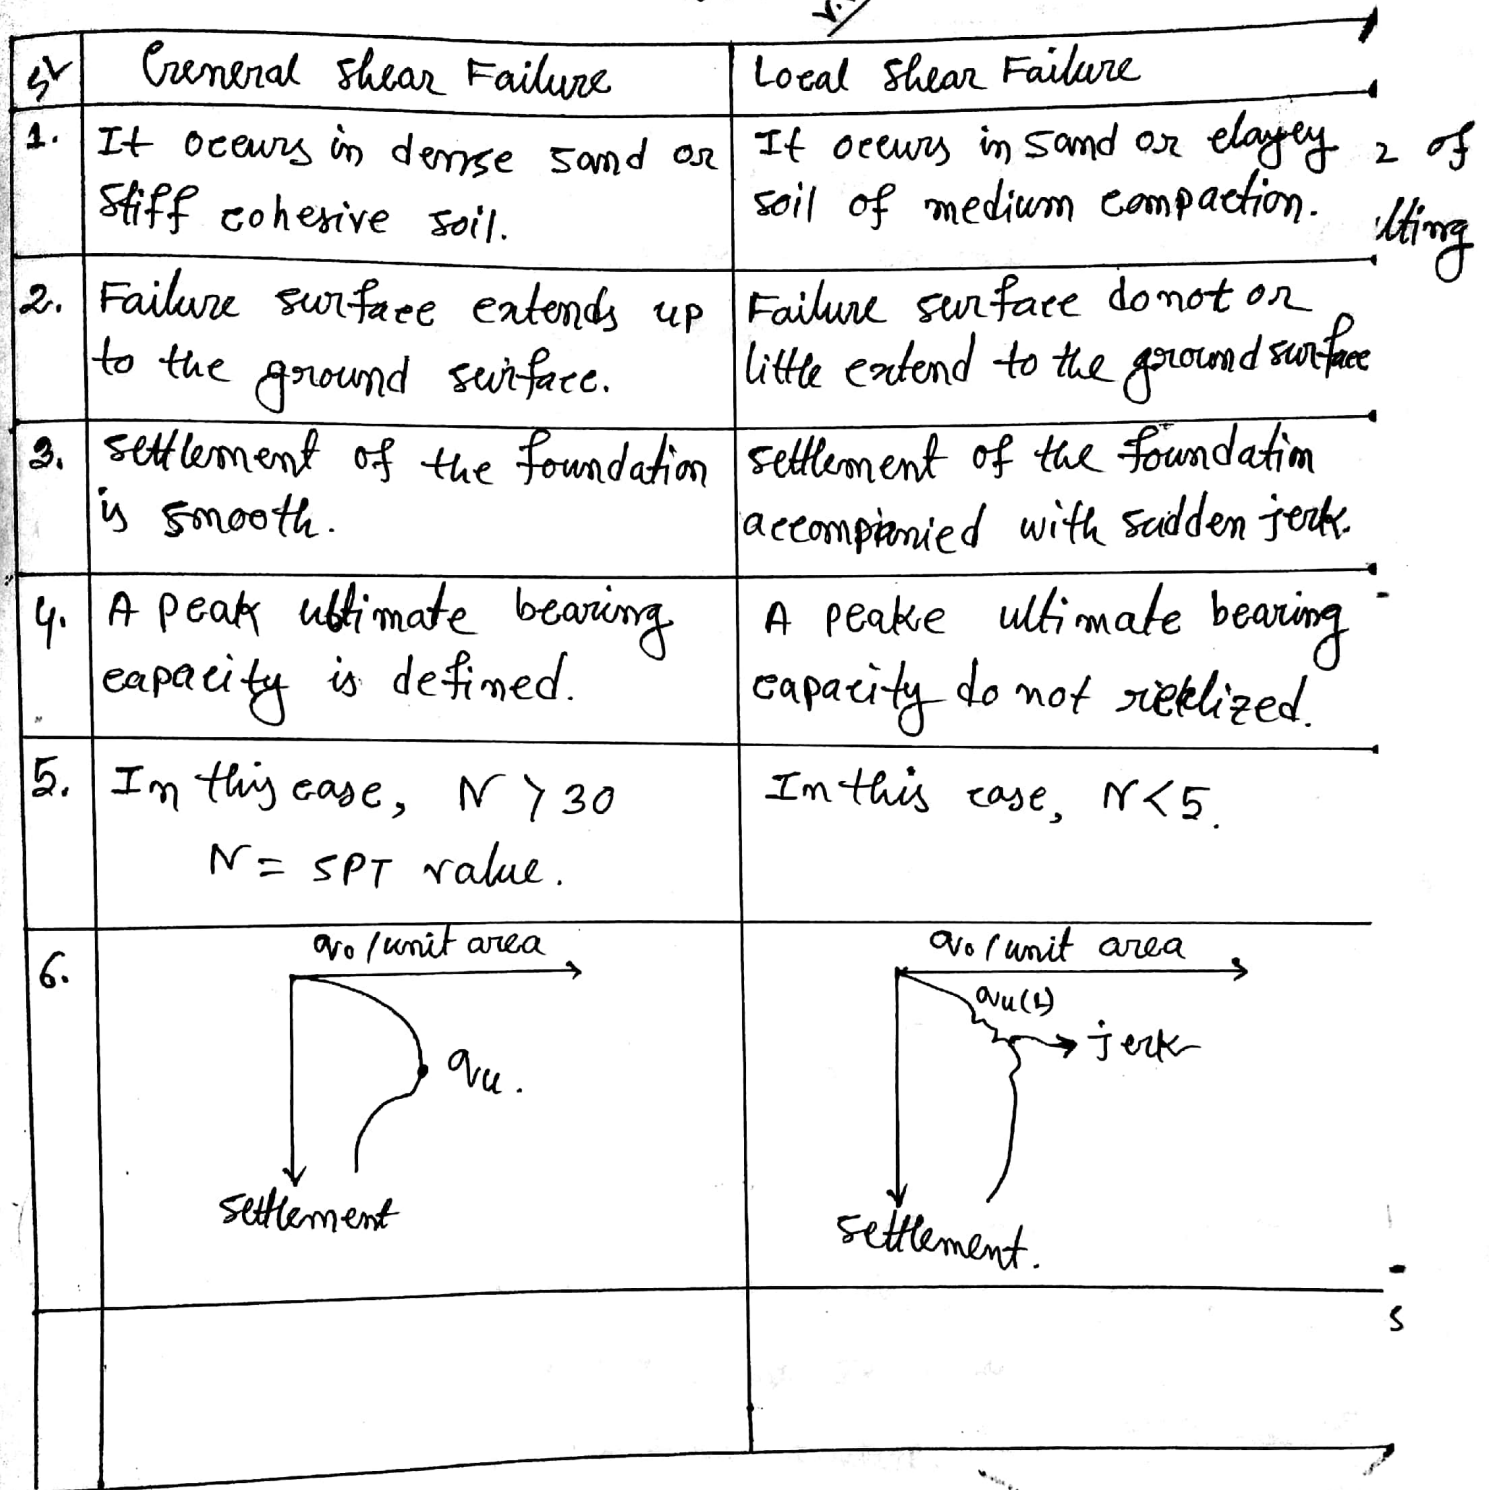 Sl General Shear Failure Local Shear Failure
1. It occurs in dense sand or
stiff cohesive soil.
It occurs in sand or clayey
soil of medium compaction.
2 of
lting
2. Failure surface extends up
to the ground surface.
Failure surface do not or
little extend to the ground surface
3. settlement of the foundation
is smooth.
settlement of the foundation
accompanied with sudden jerk.
4. A peak ultimate bearing
capacity is defined.
A peake ultimate bearing
capacity do not
5. In this case, N > 30
N = SPT value.
In this case, N < 5.
6. q₀/unit area
qu.
settlement
q₀/unit area
qu(1)
jerk
settlement.
s